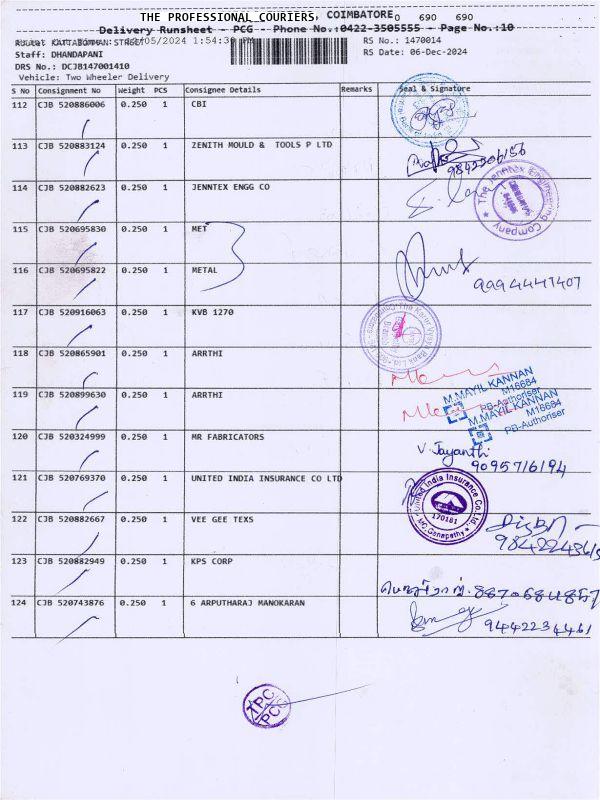 THE PROFESSIONAL COURIERS, COIMBATORE 0 690 690
Delivery Runsheet - PCG - Phone No.:0422-3505555 - Page No.:10
Route: KATTABOMMAN STREET /05/2024 1:54:30
RS No.: 1470014
Staff: DHANDAPANI
RS Date: 06-Dec-2024
DRS No.: DCJB147001410
Vehicle: Two Wheeler Delivery
S No Consignment No Weight PCS Consignee Details Remarks Seal & Signature
112 CJB 520886006 0.250 1 CBI
113 CJB 520883124 0.250 1 ZENITH MOULD & TOOLS P LTD
9842506156
114 CJB 520882623 0.250 1 JENNTEX ENGG CO
The Jenntex Engineering Company
115 CJB 520695830 0.250 1 MET
116 CJB 520695822 0.250 1 METAL
9994447407
117 CJB 520916063 0.250 1 KVB 1270
118 CJB 520865901 0.250 1 ARRTHI
M.MAYIL KANNAN
M16684
PB-Authoriser
119 CJB 520899630 0.250 1 ARRTHI
M.MAYIL KANNAN
M16684
PB-Authoriser
120 CJB 520324999 0.250 1 MR FABRICATORS
V. Jayanthi
9095716194
121 CJB 520769370 0.250 1 UNITED INDIA INSURANCE CO LTD
United India Insurance Co.Ltd
170181
MO, Ganapathy
122 CJB 520882667 0.250 1 VEE GEE TEXS
123 CJB 520882949 0.250 1 KPS CORP
124 CJB 520743876 0.250 1 6 ARPUTHARAJ MANOKARAN
9442234461
TPC
PCG